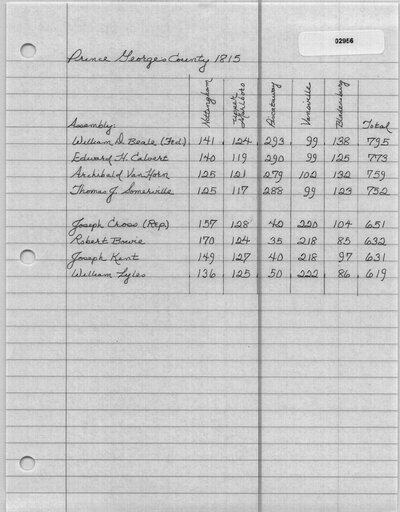 02956
Prince Georges County 1815
Nottingham Upper Marlboro Piscataway Vansville Bladensburg
Assembly: Total
William D. Beale (Fed) 141 124 293 99 138 795
Edward H. Calvert 140 119 290 99 125 773
Archibald Van Horn 125 121 279 102 132 759
Thomas J. Somerville 125 117 288 99 123 752
Joseph Cross (Rep) 157 128 42 220 104 651
Robert Bowie 170 124 35 218 85 632
Joseph Kent 149 127 40 218 97 631
William Lyles 136 125 50 222 86 619